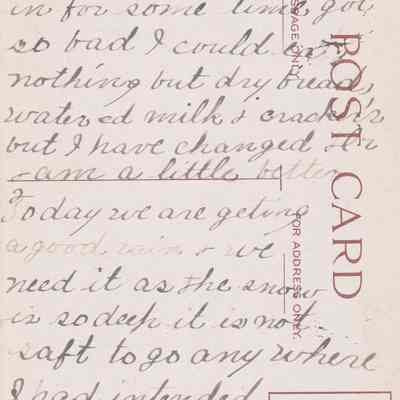 in for some time, got
so bad I could eat
nothing but dry bread,
watered milk & crackers
but I have changed Dr
& am a little better
Today we are geting
a good rain & we
need it as the snow
is so deep it is not
saft to go any where
I had intended
POST CARD
FOR ADDRESS ONLY.